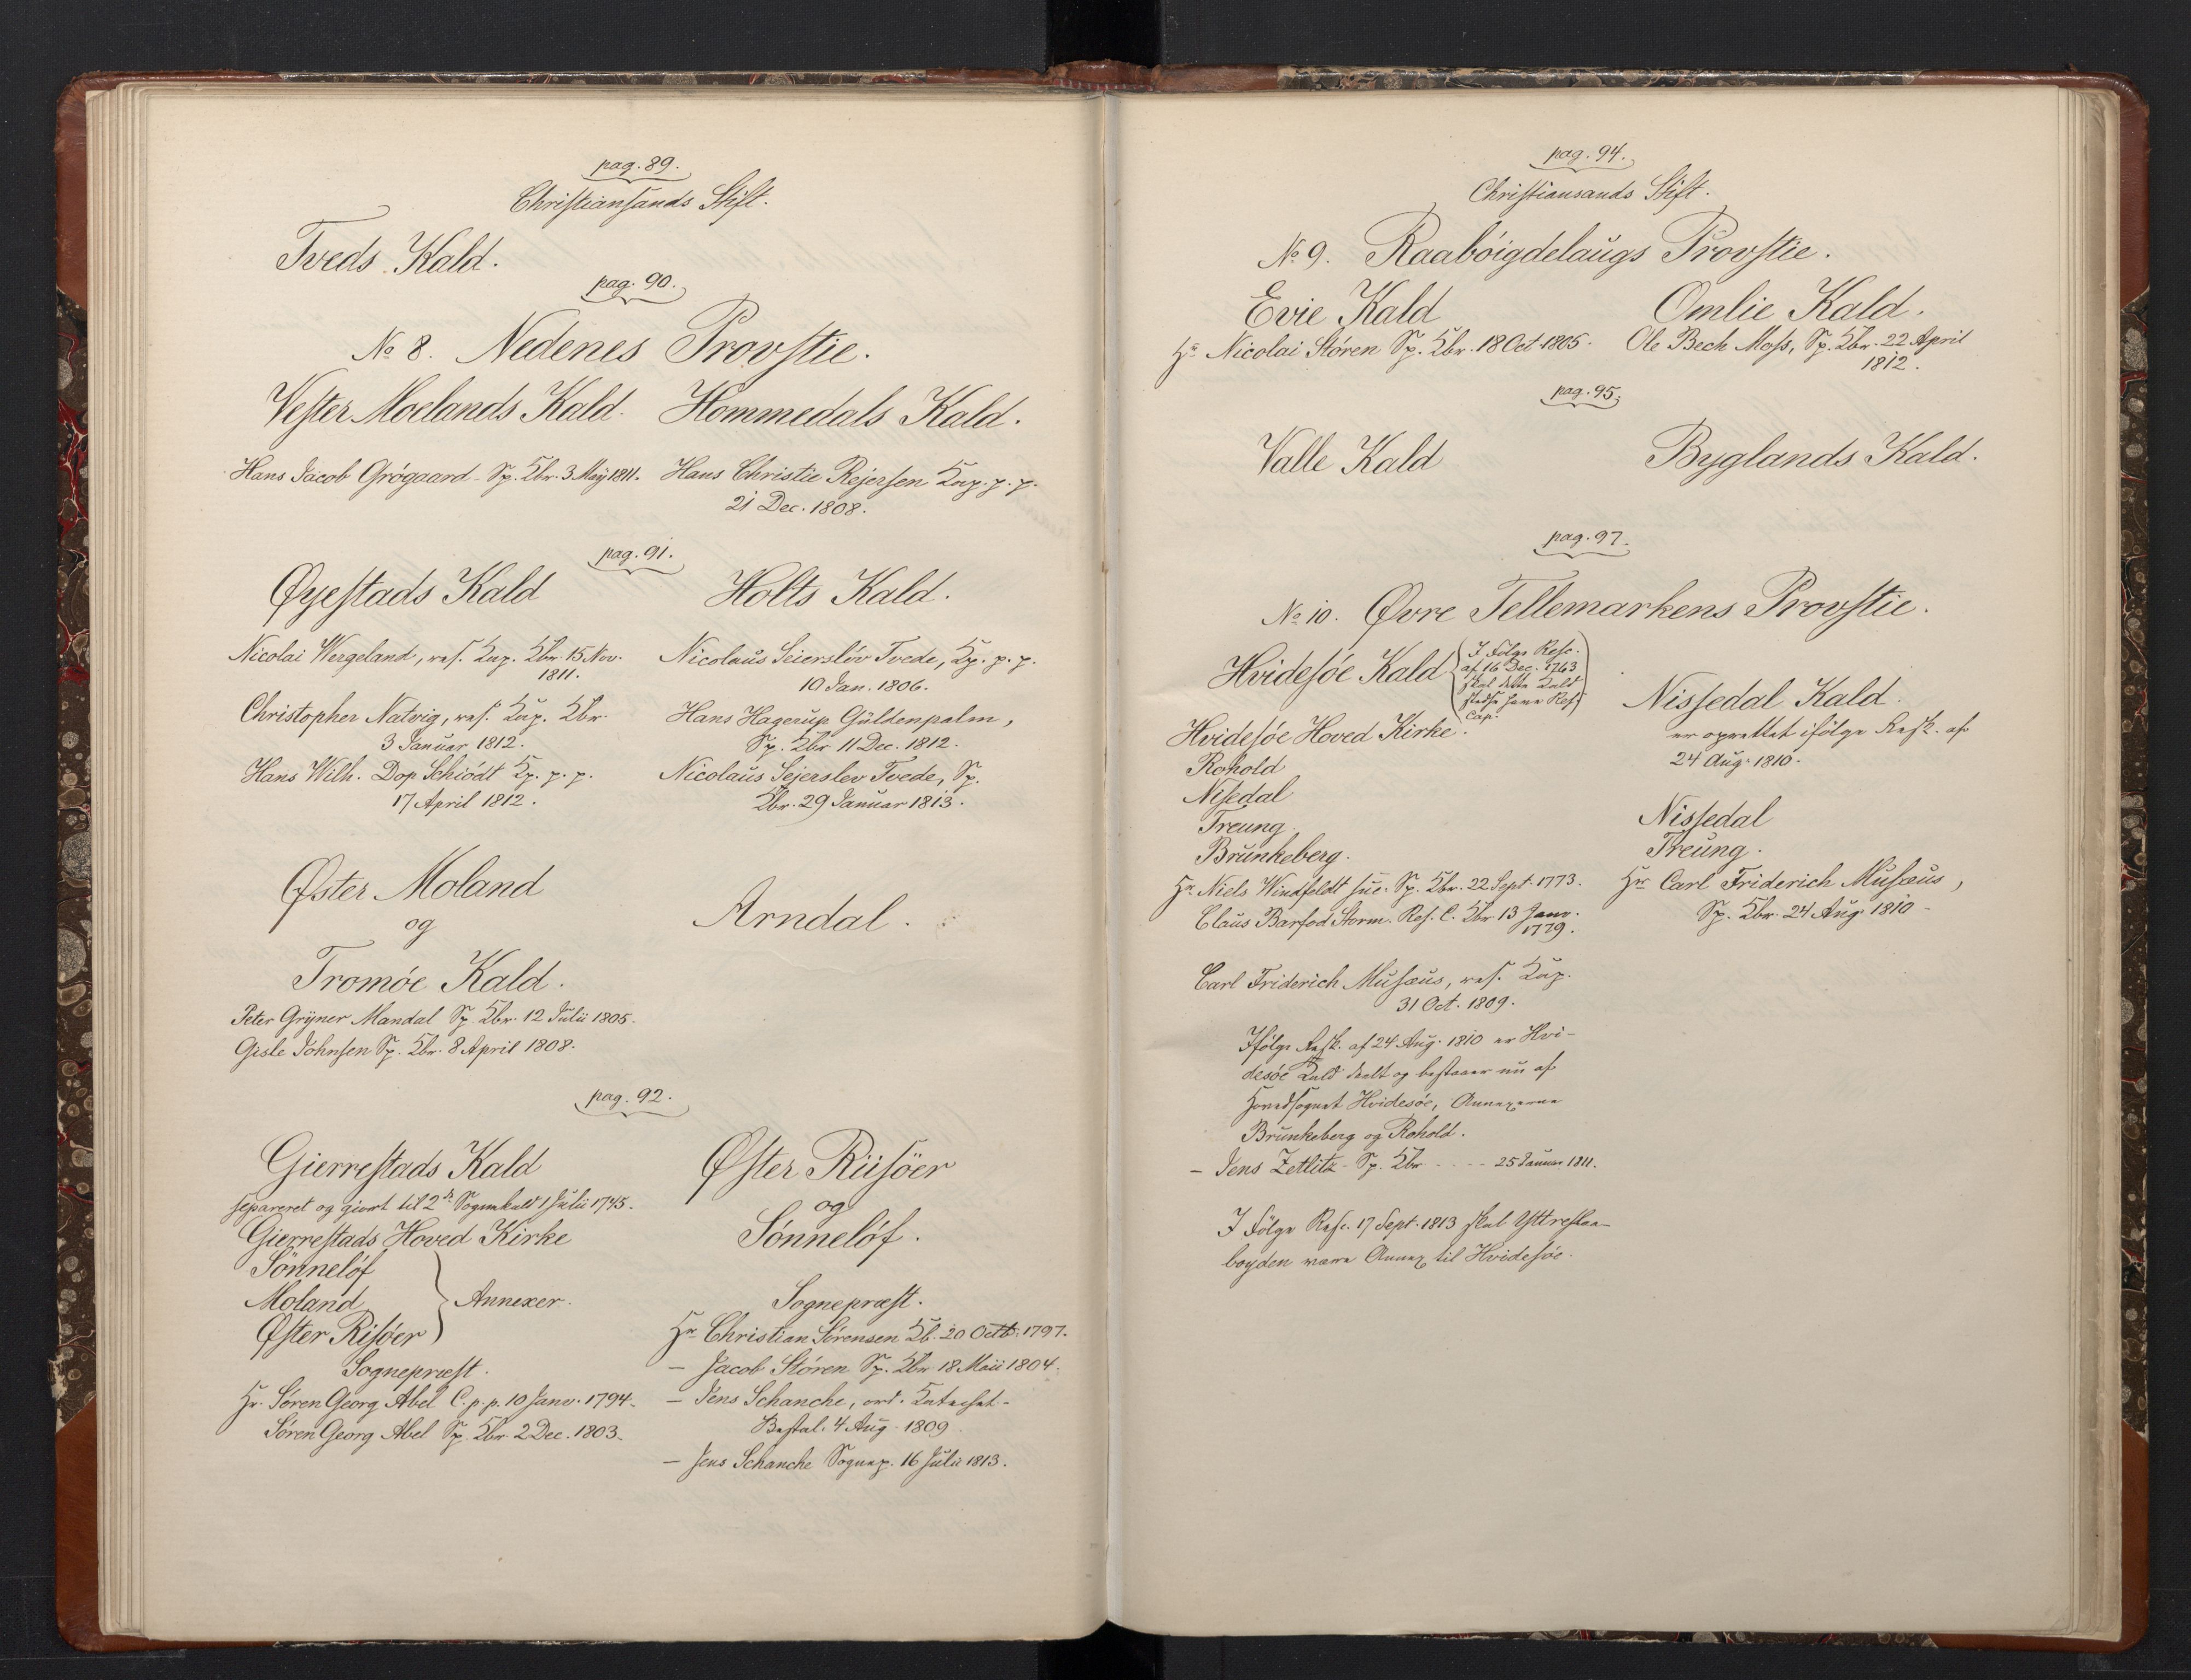 pag. 89.
Christiansands Stift.
Tveds Kald.
pag. 90.
No 8. Nedenes Provstie.
Vester Moelands Kald.
Hans Jacob Grögaard - Sp. Kbr. 3 Maÿ 1811.
Hommedals Kald.
Hans Christie Rejersen Kap. p. p.
21 Dec. 1808.
pag. 91.
Øyestads Kald
Nicolai Wergeland, res. Kap. Kbr. 15 Nov.
1811.
Christopher Natvig, res. Kap. Kbr.
3 Januar 1812.
Hans Wilh. Dop Schiödt Kp. p. p.
17 April 1812.
Holts Kald.
Nicolaus Seierslöv Tvede, Kp. p. p.
10 Jan. 1806.
Hans Hagerup Güldenpalm,
Sp. Kbr 11 Dec. 1812.
Nicolaus Sejerslev Tvede, Sp.
Kbr. 29 Januar 1813.
Øster Moland
og
Tromöe Kald.
Peter Grÿner Mandal Sp. Kbr. 12 Julii 1805.
Gisle Johnsen Sp. Kbr. 8 April 1808.
Arndal.
pag. 92.
Gierrestads Kald
separeret og giort til 2de Sognekald 1 Julii 1745.
Gierrestads Hoved Kirke
Sönnelöf
Moland
Øster Risöer
Annexer.
Sognepræst.
Hr. Sören Georg Abel C. p. p. 10 Janv. 1794.
Sören Georg Abel Sp. Kbr. 2 Dec. 1803.
Øster Riisöer
og
Sönnelöf.
Sognepræst.
Hr Christian Sörensen Kb. 20 Octb. 1797.
- Jacob Stören Sp. Kbr 18 Maii 1804.
- Jens Schanche, ord. Katechet -
Bestal. 4 Aug. 1809.
- Jens Schanche Sognep. 16 Julii 1813.
pag. 94.
Christiansands Stift.
No 9. Raaböigdelaugs Provstie.
Evie Kald
Hr Nicolai Stören Sp. Kbr. 18 Oct 1805.
Omlie Kald.
Ole Bech Moss, Sp. Kbr. 22 April
1812.
pag. 95.
Valle Kald
Byglands Kald.
pag. 97.
No 10. Øvre Tellemarkens Provstie.
Hvidesöe Kald
I Fölge Resc.
af 16 Dec. 1763
skal dette Kald
stedse have Res.
Cap.
Hvidesöe Hoved Kirke.
Rohold
Nisedal
Treung
Brunkeberg.
Hr. Niels Windfeldt suc. Sp. Kbr. 22 Sept. 1773.
Claus Barfod Storm. Res. C. Kbr 13 Janv.
1779.
Carl Friderich Musæus, res. Kap.
31 Oct. 1809.
Ifölge Resk. af 24 Aug. 1810 er Hvi-
desöe Kald deelt og bestaaer nu af
Hovedsognet Hvidesöe, Annexerne
Brunkeberg og Rohold.
- Jens Zetlitz - Sp. Kbr - - - - 25 Januar 1811.
I Fölge Resc. 17 Sept. 1813 skal
boygden være Annex til Hvidesöe.
Nissedal Kald.
er oprettet ifölge Resk. af
24 Aug. 1810.
Nissedal
Treung.
Hr Carl Friderich Musæus,
Sp. Kbr. 24 Aug 1810 -